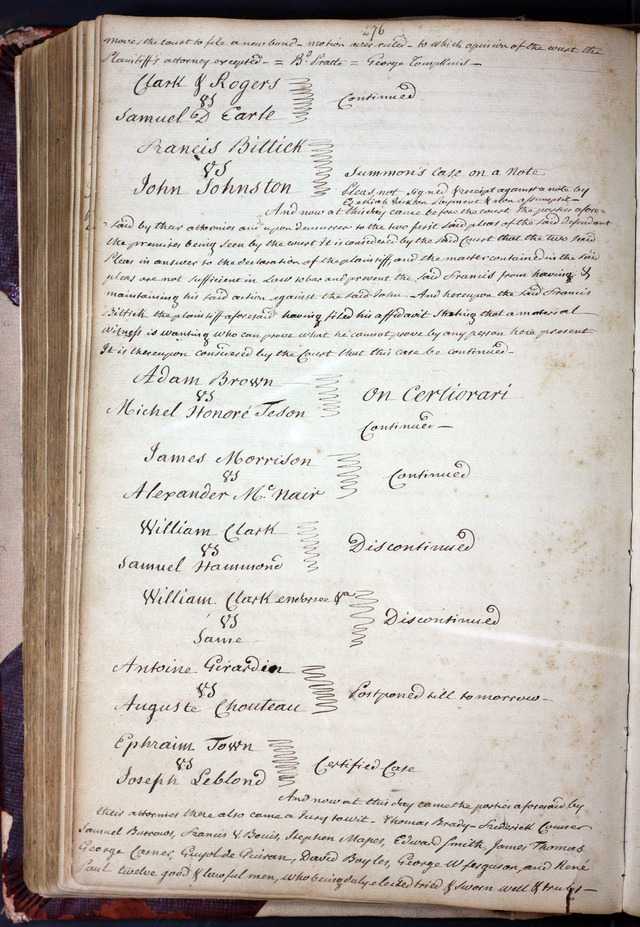 276
moves the court to file a new bond - motion over ruled - to which opinion of the court the
Plaintiff's attorney excepted - = Bd Pratte = George Tompkins -
Clark & Rogers
VS
Samuel D Earle
Continued
Francis Bittick
VS
John Johnston
Summon's Case on a Note
Pleas, not signed & receipt against a note by
Payment & non assumpsit -
And now at this day came before the court the parties afore-
said by their attornies and upon demurrer to the two first said pleas of the said defendant
the premises being seen by the court it is considered by the said Court that the two said
Pleas in answer to the declaration of the plaintiff, and the matter contained in the said
pleas are not sufficient in Law to bar and prevent the said Francis from having &
maintaining his said action against the said John - And hereupon the said Francis
Bittick the plaintiff aforesaid having filed his affidavit stating that a material
witness is wanting who can prove what he cannot prove by any person here present
It is thereupon considered by the Court that this case be continued -
Adam Brown
VS
Michel Honoré Teson
On Certiorari
Continued -
James Morrison
VS
Alexander McNair
Continued
William Clark
VS
Samuel Hammond
Discontinued
William Clark endorsee &a
VS
Same
Discontinued
Antoine Girardin
VS
Auguste Chouteau
Postponed till to morrow -
Ephraim Town
VS
Joseph Leblond
Certified Case
And now at this day came the parties aforesaid by
their attornies there also came a Jury to wit - Thomas Brady - Frederick Couser
Samuel Burrows, Francis V Bouis, Stephen Mapes, Edward Smith, James Thomas
George Casner, Guyol de Guiran, David Boyles, George W ferguson, and René
Paul twelve good & lawful men, who being duly elected tried & sworn well & truly -